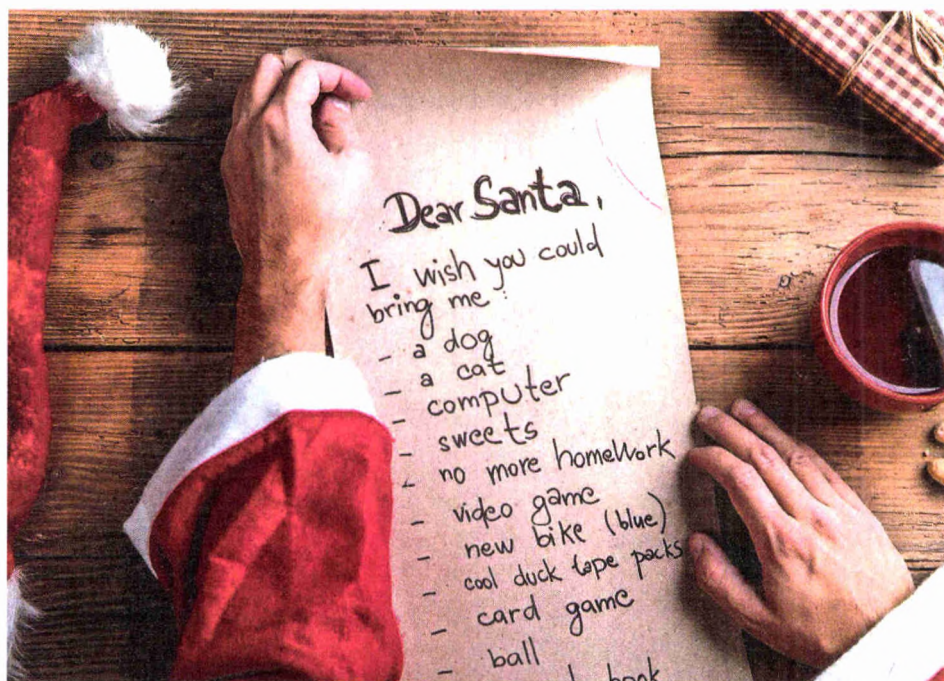 Dear Santa,
I wish you could
bring me :
- a dog
- a cat
- computer
- sweets
- no more homework
- video game
- new bike (blue)
- cool duck tape packs
- card game
- ball
book